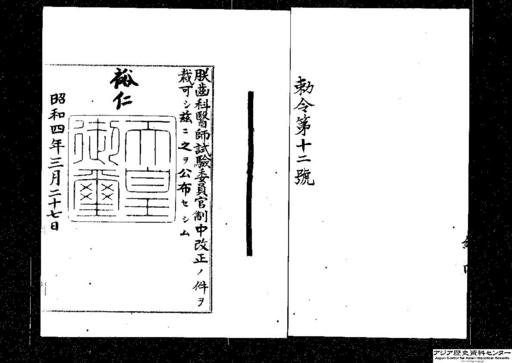 勅令第十二號
朕齒科醫師試驗委員官制中改正ノ件ヲ
裁可シ茲ニ之ヲ公布セシム
裕仁
天皇
御璽
昭和四年三月二十七日
アジア歴史資料センター
Japan Center for Asian Historical Records